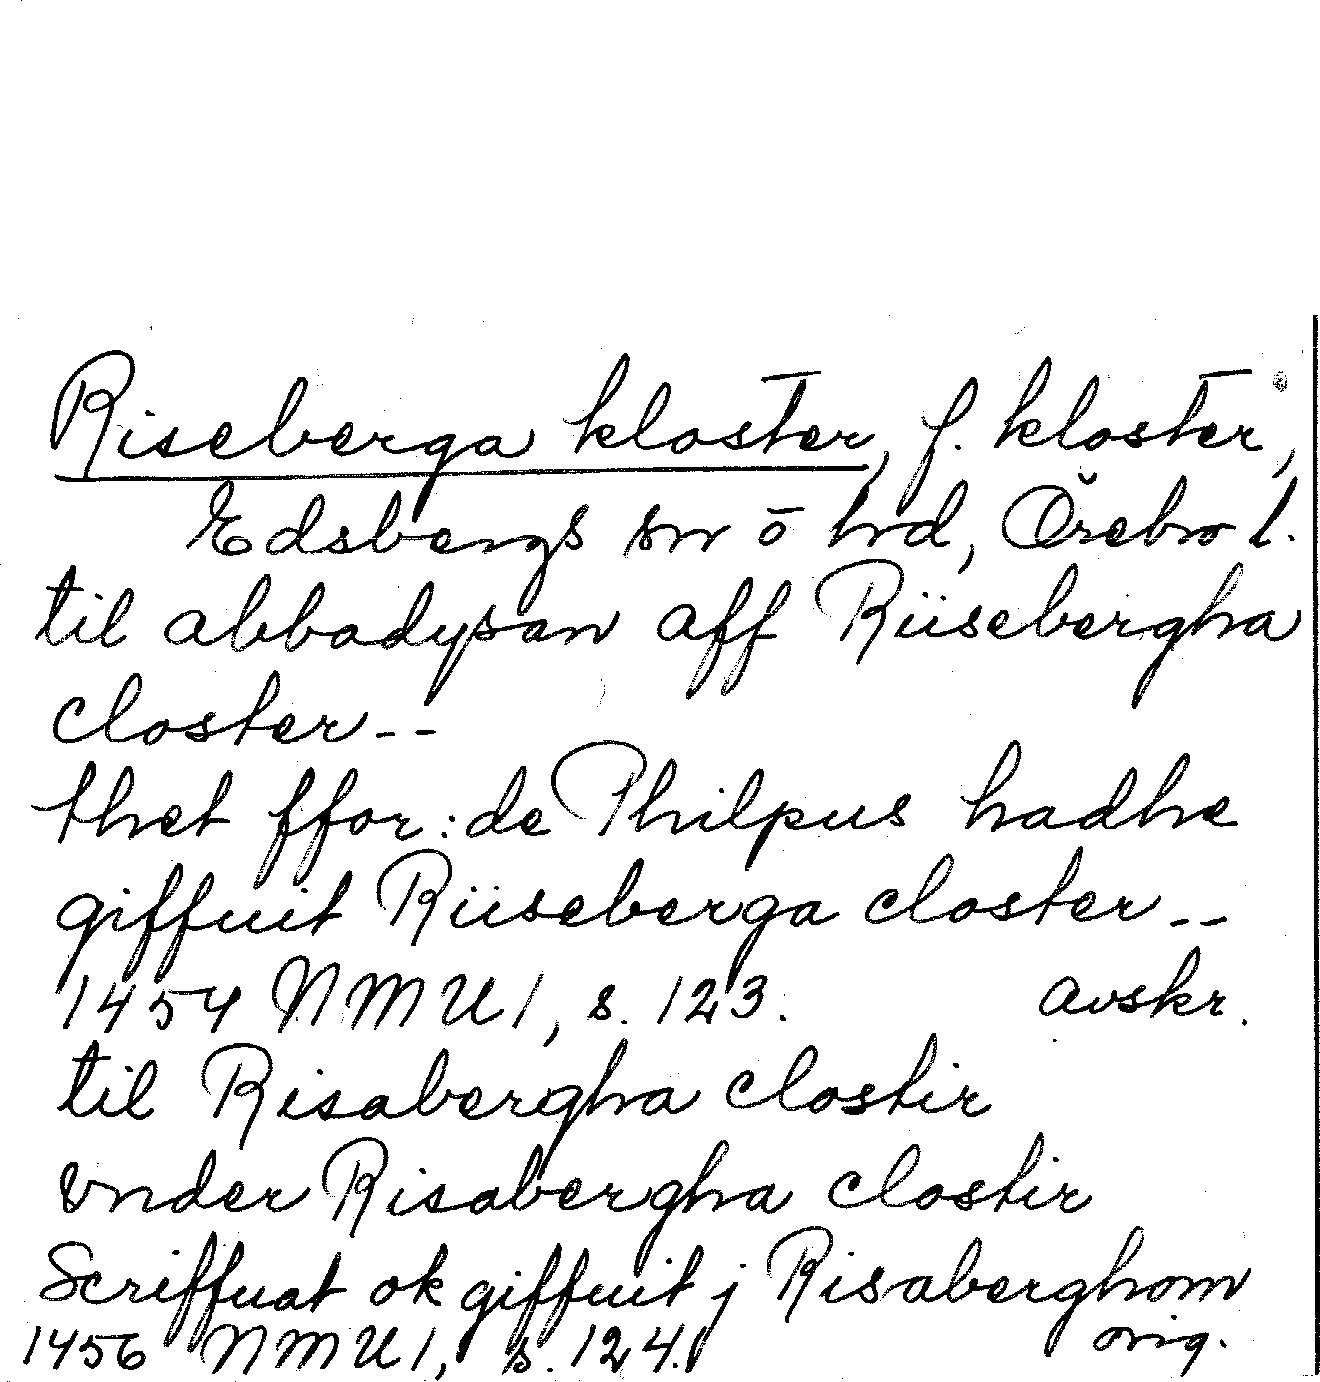 Riseberga kloster, f. kloster,
Edsbergs sn o hd, Örebro l.
til abbadysan aff Riisebergha
closter--
thet ffor:de Philpus hadhe
giffuit Riiseberga closter--
1454 NMU 1, s. 123. avskr.
til Risabergha clostir
vnder Risabergha clostir
Scriffuat ok giffuit j Risaberghom
1456 NMU 1, s. 124. orig.